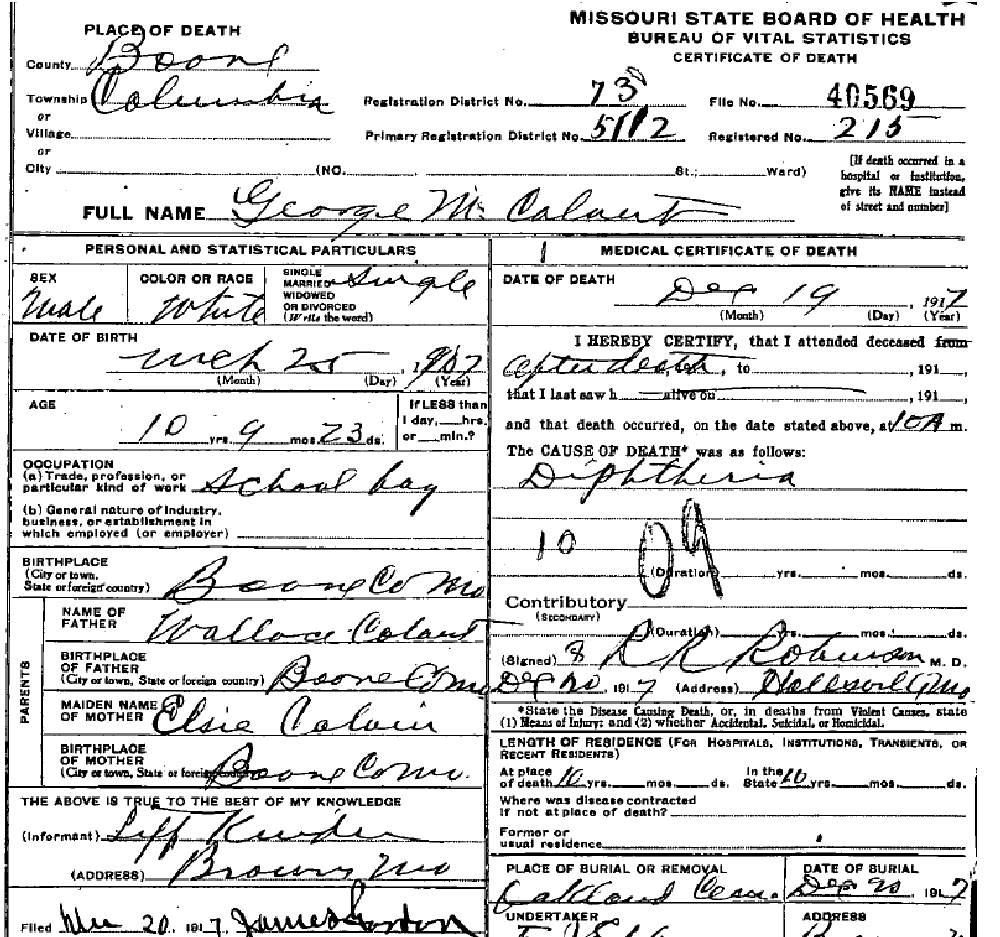 MISSOURI STATE BOARD OF HEALTH
BUREAU OF VITAL STATISTICS
CERTIFICATE OF DEATH
PLACE OF DEATH
County Boone
Township Columbia
or
Village
or
City (NO. St.; Ward)
Registration District No. 73 File No. 40569
Primary Registration District No. 5112 Registered No. 215
[If death occurred in a
hospital or institution,
give its NAME instead
of street and number]
FULL NAME George M. Calvert
PERSONAL AND STATISTICAL PARTICULARS
SEX
Male
COLOR OR RACE
White
SINGLE
MARRIED
WIDOWED
OR DIVORCED
(Write the word)
Single
DATE OF BIRTH
Mch 25, 1907
(Month) (Day) (Year)
AGE
10 yrs. 9 mos. 23 ds.
If LESS than
1 day, hrs.
or min.?
OCCUPATION
(a) Trade, profession, or
particular kind of work School boy
(b) General nature of industry,
business, or establishment in
which employed (or employer)
BIRTHPLACE
(City or town,
State or foreign country) Boone Co Mo
PARENTS
NAME OF
FATHER
Wallace Calvert
BIRTHPLACE
OF FATHER
(City or town, State or foreign country) Boone Co Mo
MAIDEN NAME
OF MOTHER
Elsie Calvin
BIRTHPLACE
OF MOTHER
(City or town, State or foreign country) Boone Co Mo.
THE ABOVE IS TRUE TO THE BEST OF MY KNOWLEDGE
(Informant)
(ADDRESS) Browns Mo
Filed 20, 1917, James Gordon
MEDICAL CERTIFICATE OF DEATH
DATE OF DEATH
Dec 19, 1917
(Month) (Day) (Year)
I HEREBY CERTIFY, that I attended deceased from
after death, 191, to , 191,
that I last saw h alive on , 191,
and that death occurred, on the date stated above, at 10A m.
The CAUSE OF DEATH* was as follows:
Diphtheria
10 09
(Duration) yrs. mos. ds.
Contributory
(SECONDARY)
(Duration) yrs. mos. ds.
(Signed) R R Robinson M. D.
Dec 20, 1917 (Address) Hallsville Mo
*State the Disease Causing Death, or, in deaths from Violent Causes, state
(1) Means of Injury; and (2) whether Accidental, Suicidal, or Homicidal.
LENGTH OF RESIDENCE (FOR HOSPITALS, INSTITUTIONS, TRANSIENTS, OR
RECENT RESIDENTS)
At place
of death 10 yrs. mos. ds.
In the
State 10 yrs. mos. ds.
Where was disease contracted
if not at place of death?
Former or
usual residence
PLACE OF BURIAL OR REMOVAL
Oakland Cem.
DATE OF BURIAL
Dec 20 1917
UNDERTAKER
ADDRESS